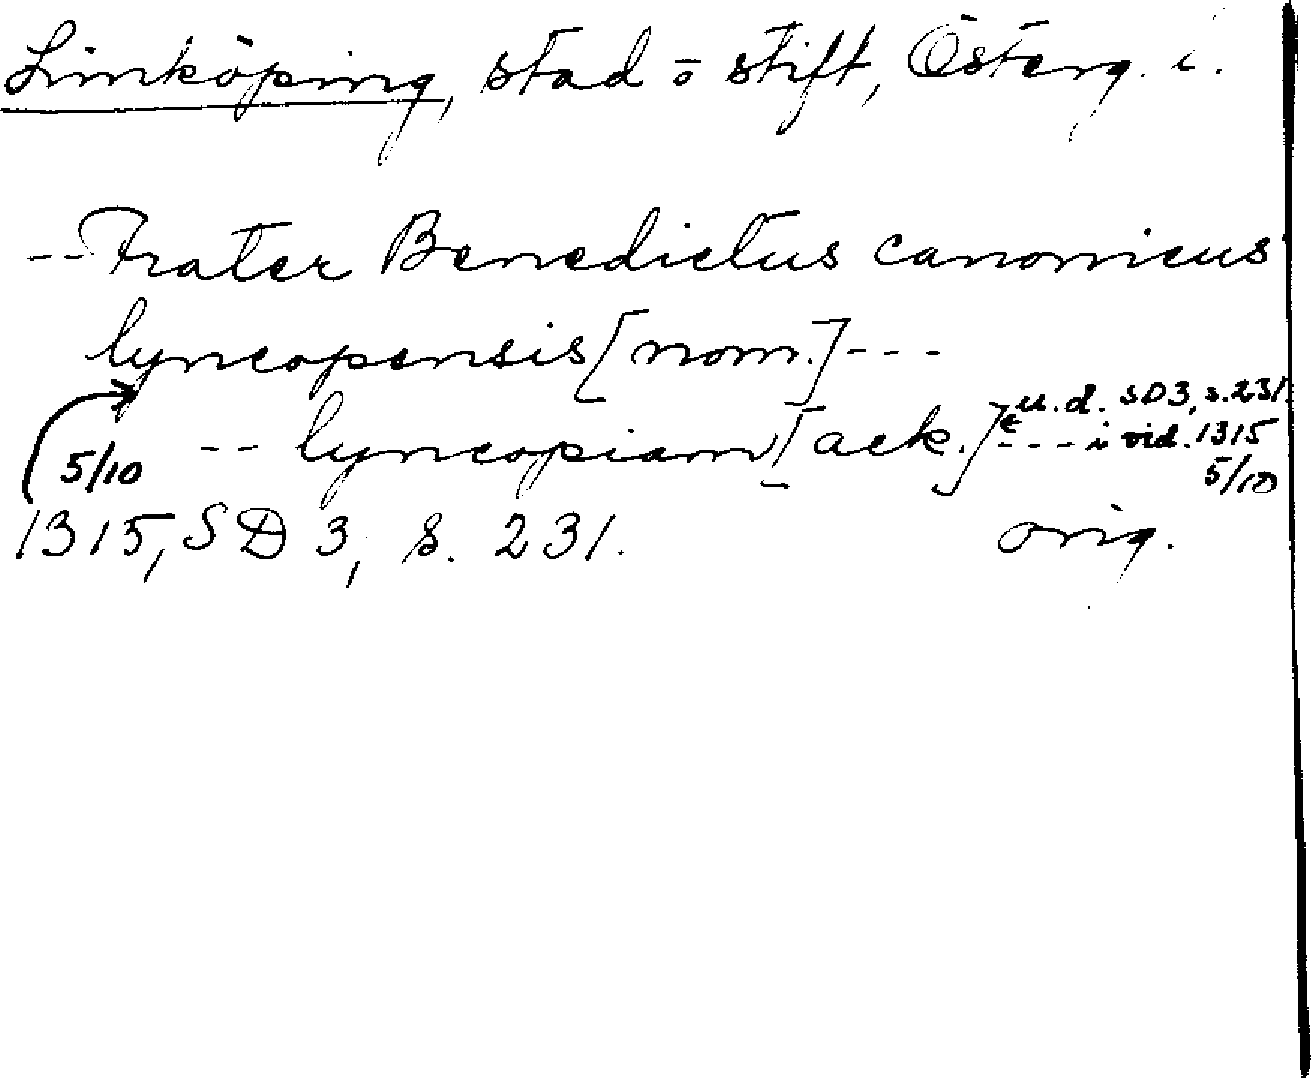 Linköping, stad o stift, Österg. l.
-- Frater Benedictus canonicus
lyncopensis [nom.] ---
u.d. SD3, s.231.
5/10 -- lyncopiam [ack.] --- i vid. 1315
5/10
1315, SD 3, s. 231. orig.